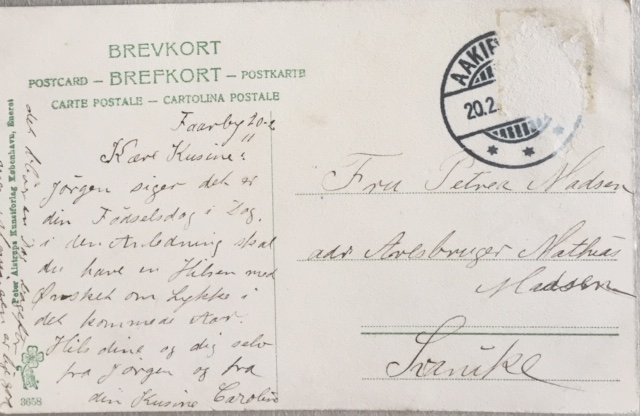 BREVKORT
POSTCARD – BREFKORT – POSTKARTE
CARTE POSTALE – CARTOLINA POSTALE
AAKIR
20.2.
Faarby 20-2
Kære Kusine!
Jörgen siger det er
din Födselsdag i Dag,
i den Anledning skal
du have en Hilsen med
Ønsket om Lykke i
det kommede Aar.
Hils dine og dig selv
fra Jörgen og fra
din Kusine Caroline
Fru Petrea Madsen
adr Avlsbruger Mathias
Madsen
Svanike
Peter Alstrups Kunstforlag København, Eneret
3658